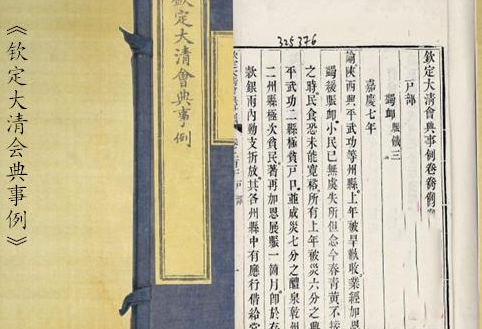 325376
欽定大清會典事例卷
戶部
蠲卹 賑饑三
嘉慶七年
諭陝西興平武功等州縣上年被旱歉收業經加恩
蠲緩賑卹小民已無虞失所但念今春青黃不接
之時民食恐未能寬裕所有上年被災六分之興
平武功二縣極貧戶口並成災七分之醴泉乾州
二州縣極次貧民著再加恩展賑一箇月卽於存
款銀兩內動支折放其各州縣中有應行借給
欽定大清會典事例
《钦定大清会典事例》